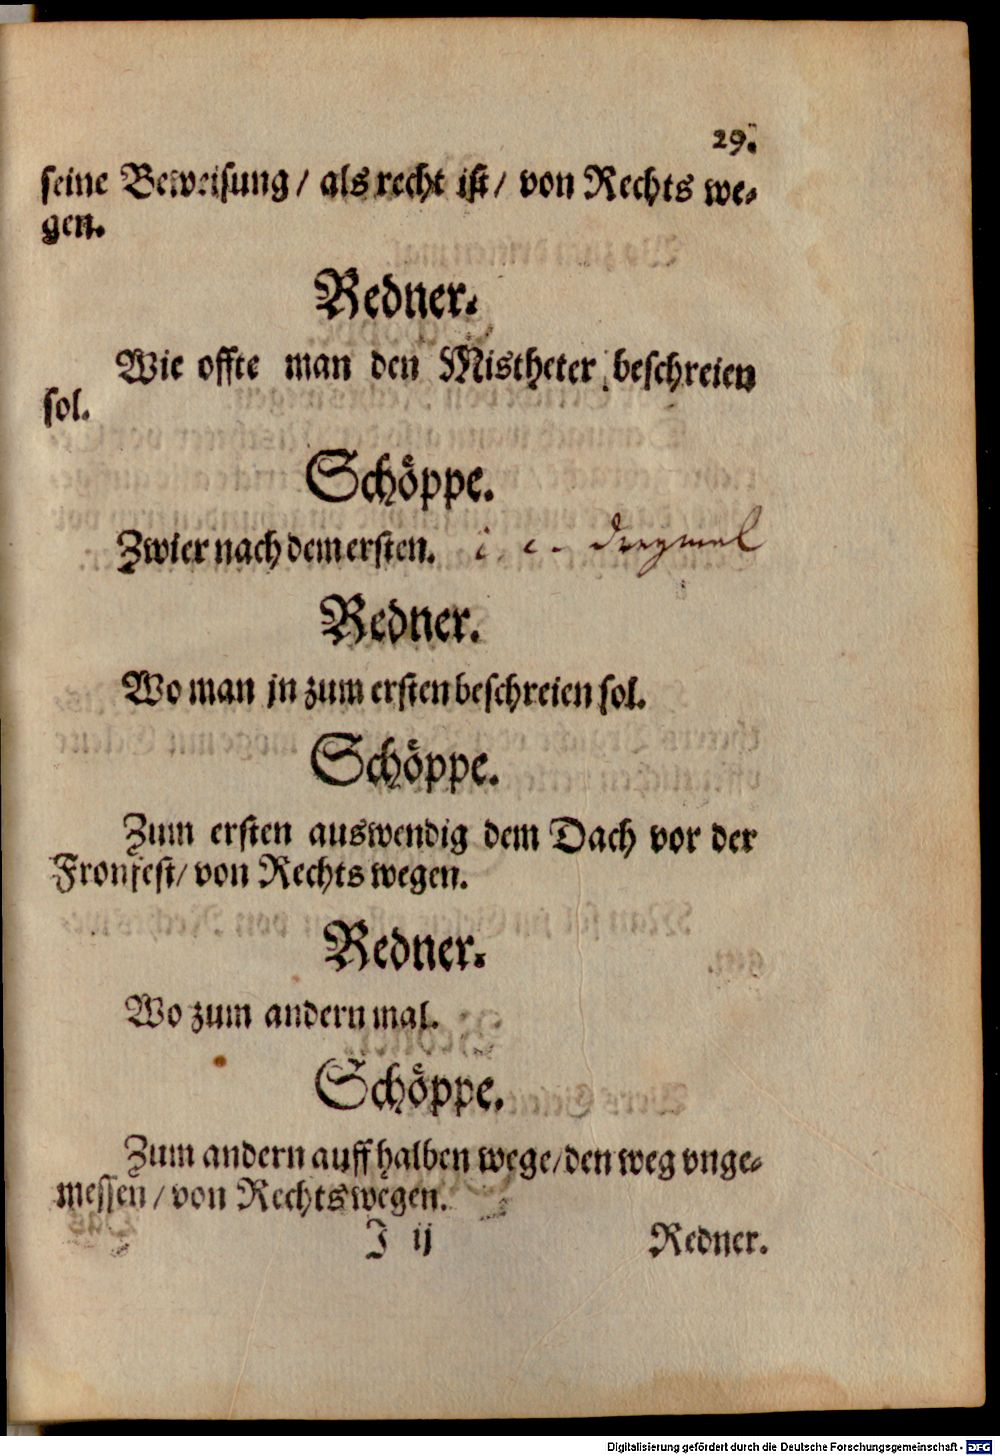 29.
seine Beweisung / als recht ist / von Rechts we-
gen.
Redner.
Wie offte man den Mistheter beschreien
sol.
Schöppe.
Zwier nach dem ersten. i. e. dreymal
Redner.
Wo man jn zum ersten beschreien sol.
Schöppe.
Zum ersten auswendig dem Dach vor der
Fronfest / von Rechts wegen.
Redner.
Wo zum andern mal.
Schöppe.
Zum andern auff halben wege / den weg vnge-
messen / von Rechts wegen.
J ij Redner.
Digitalisierung gefördert durch die Deutsche Forschungsgemeinschaft - DFG